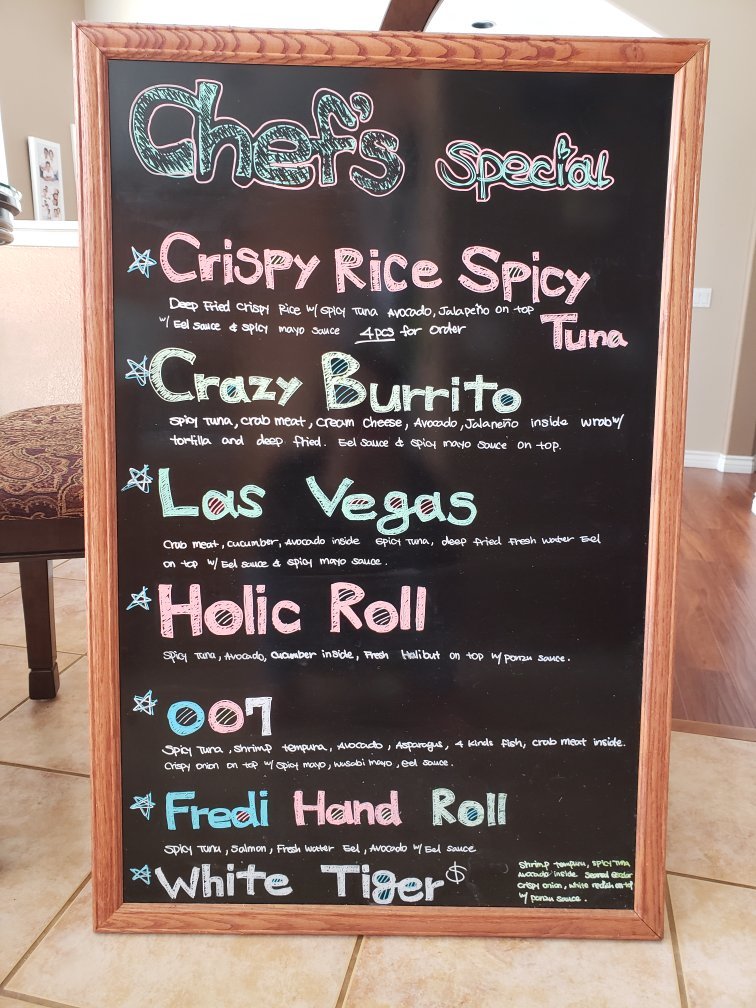 Chef's Special
Crispy Rice Spicy
Tuna
Deep Fried Crispy Rice w/ Spicy Tuna Avocado, Jalapeño on top
w/ Eel Sauce & Spicy mayo Sauce 4pcs for order
Crazy Burrito
Spicy Tuna, Crab meat, Cream Cheese, Avocado, Jalapeño inside wrab w/
tortilla and deep fried. Eel Sauce & Spicy mayo Sauce on top.
Las Vegas
Crab meat, Cucumber, Avocado inside Spicy Tuna, deep fried Fresh water Eel
on top w/ Eel sauce & spicy mayo sauce.
Holic Roll
Spicy Tuna, Avocado, Cucumber inside, Fresh Halibut on top w/ ponzu sauce.
007
Spicy Tuna, Shrimp tempura, Avocado, Asparagus, 4 kinds fish, Crab meat inside.
Crispy onion on top w/ Spicy mayo, Wasabi mayo, Eel sauce.
Fredi Hand Roll
Spicy Tuna, Salmon, Fresh water Eel, Avocado w/ Eel Sauce
White Tiger $
Shrimp tempura, Spicy Tuna
Avocado inside Seared
Crispy onion, white on top
w/ ponzu sauce.